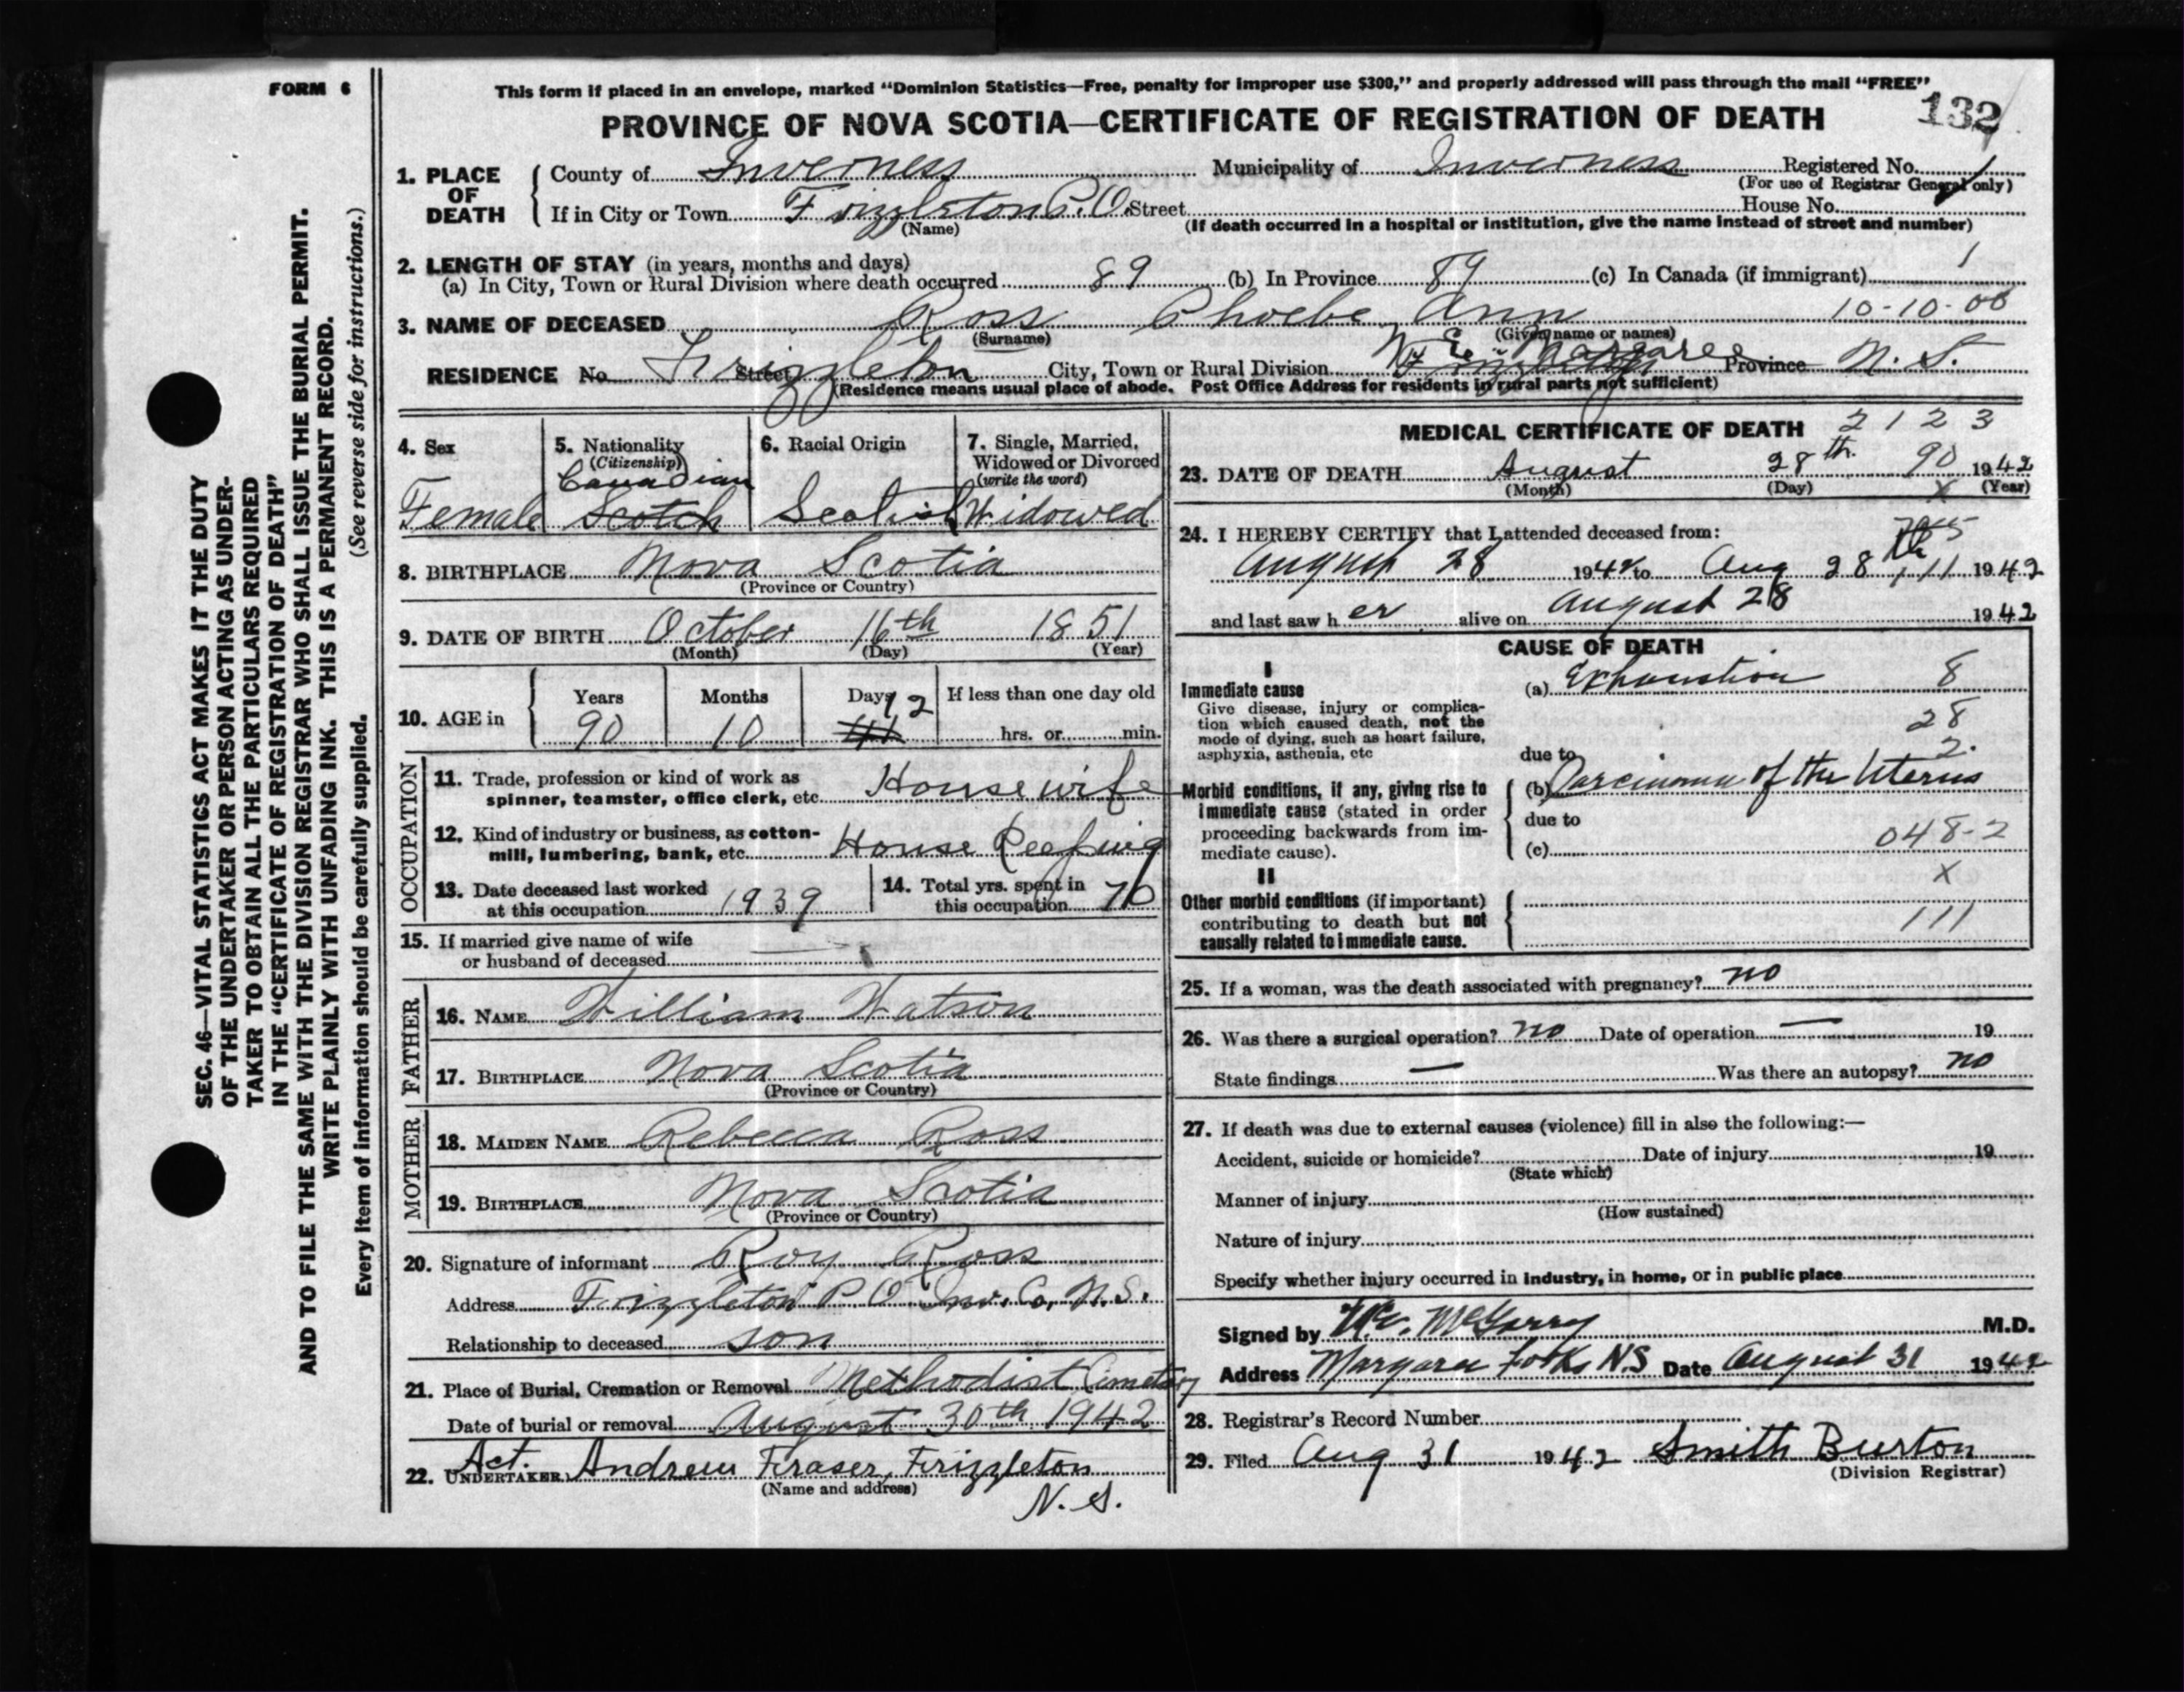 FORM 6
This form if placed in an envelope, marked “Dominion Statistics—Free, penalty for improper use $300,” and properly addressed will pass through the mail “FREE”
PROVINCE OF NOVA SCOTIA—CERTIFICATE OF REGISTRATION OF DEATH
132
1. PLACE OF DEATH
County of Inverness Municipality of Inverness Registered No. 1
(For use of Registrar General only)
If in City or Town Frizzleton P.O. Street House No.
(Name) (If death occurred in a hospital or institution, give the name instead of street and number)
2. LENGTH OF STAY (in years, months and days)
(a) In City, Town or Rural Division where death occurred 89 (b) In Province 89 (c) In Canada (if immigrant) 1
3. NAME OF DECEASED Ross Phoebe Ann 10-10-00
(Surname) (Given name or names)
N. E. Margaree
RESIDENCE No. Street Frizzleton City, Town or Rural Division Frizzleton Province N. S.
(Residence means usual place of abode. Post Office Address for residents in rural parts not sufficient)
4. Sex
Female
5. Nationality
(Citizenship)
Canadian
Scotch
6. Racial Origin
Scotish
7. Single, Married,
Widowed or Divorced
(write the word)
Widowed
8. BIRTHPLACE Nova Scotia
(Province or Country)
9. DATE OF BIRTH October 16th 1851
(Month) (Day) (Year)
10. AGE in
Years Months Days If less than one day old
90 10 12 hrs. or min.
OCCUPATION
11. Trade, profession or kind of work as
spinner, teamster, office clerk, etc. Housewife
12. Kind of industry or business, as cotton-
mill, lumbering, bank, etc. House Keeping
13. Date deceased last worked
at this occupation 1939
14. Total yrs. spent in
this occupation 70
15. If married give name of wife
or husband of deceased —
FATHER
16. NAME William Watson
17. BIRTHPLACE Nova Scotia
(Province or Country)
MOTHER
18. MAIDEN NAME Rebecca Ross
19. BIRTHPLACE Nova Scotia
(Province or Country)
20. Signature of informant Roy Ross
Address Frizzleton P O Inv. Co. N.S.
Relationship to deceased son
21. Place of Burial, Cremation or Removal Methodist Cimetary
Date of burial or removal August 30th 1942
Act.
22. UNDERTAKER Andrew Fraser, Frizzleton
(Name and address)
N. S.
MEDICAL CERTIFICATE OF DEATH 2 1 2 3
23. DATE OF DEATH August 28th. 90 1942
(Month) (Day) x (Year)
24. I HEREBY CERTIFY that I attended deceased from:
August 28 1942 to Aug 28 111 1942
and last saw her alive on August 28 1942
CAUSE OF DEATH
I
Immediate cause
Give disease, injury or complica-
tion which caused death, not the
mode of dying, such as heart failure,
asphyxia, asthenia, etc
(a) Exhaustion 8
28
2.
due to
Morbid conditions, if any, giving rise to
immediate cause (stated in order
proceeding backwards from im-
mediate cause).
(b) Carcinoma of the Uterus
due to
(c) 048-2
x
II
Other morbid conditions (if important)
contributing to death but not
causally related to immediate cause.
111
25. If a woman, was the death associated with pregnancy? no
26. Was there a surgical operation? no Date of operation — 19
State findings — Was there an autopsy? no
27. If death was due to external causes (violence) fill in also the following:—
Accident, suicide or homicide? Date of injury 19
(State which)
Manner of injury
(How sustained)
Nature of injury
Specify whether injury occurred in industry, in home, or in public place
Signed by McGarry M.D.
Address Margaree Forks N.S Date August 31 1942
28. Registrar's Record Number
29. Filed Aug 31 1942 Smith Burton
(Division Registrar)
SEC. 46—VITAL STATISTICS ACT MAKES IT THE DUTY
OF THE UNDERTAKER OR PERSON ACTING AS UNDER-
TAKER TO OBTAIN ALL THE PARTICULARS REQUIRED
IN THE “CERTIFICATE OF REGISTRATION OF DEATH”
AND TO FILE THE SAME WITH THE DIVISION REGISTRAR WHO SHALL ISSUE THE BURIAL PERMIT.
WRITE PLAINLY WITH UNFADING INK. THIS IS A PERMANENT RECORD.
Every item of information should be carefully supplied. (See reverse side for instructions.)